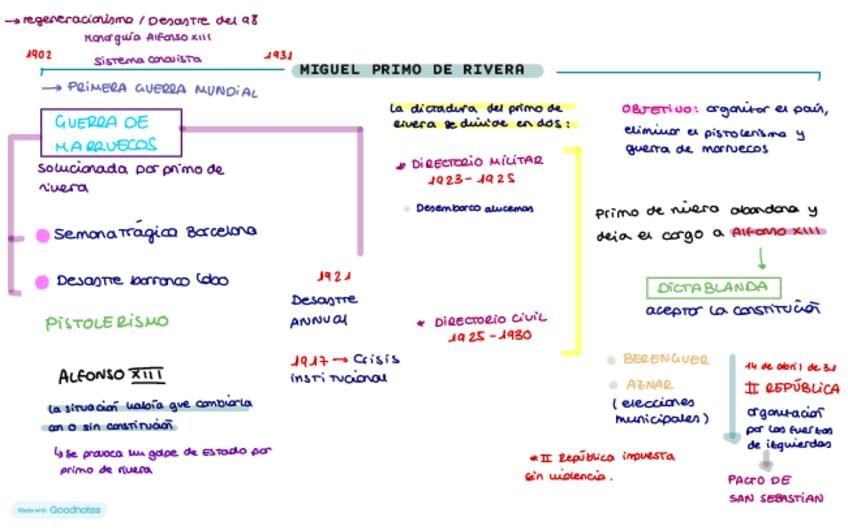 → regeneracionismo / Desastre del 98
Monarquía Alfonso XIII
1902
Sistema canovista
1931
MIGUEL PRIMO DE RIVERA
→ PRIMERA GUERRA MUNDIAL
GUERRA DE
MARRUECOS
Solucionada por primo de
rivera
Semana Trágica Barcelona
Desastre barranco Lobo
PISTOLERISMO
ALFONSO XIII
la situación había que cambiarla
con o sin constitución
↳ Se provoca un golpe de Estado por
primo de rivera
1921
Desastre
ANNUAL
1917 → Crisis
institucional
la dictadura del primo de
rivera se divide en dos:
* DIRECTORIO MILITAR
1923-1925
Desembarco alucemas
* DIRECTORIO CIVIL
1925-1930
OBJETIVO: organizar el país,
eliminar el pistolerismo y
guerra de marruecos
Primo de rivera abandona y
deja el cargo a Alfonso XIII
DICTABLANDA
aceptar la constitución
BERENGUER
AZNAR
(elecciones
municipales)
14 de abril de 31
II REPÚBLICA
organización
por las fuerzas
de izquierdas
PACTO DE
SAN SEBASTIAN
* II República impuesta
sin violencia.
Made with Goodnotes